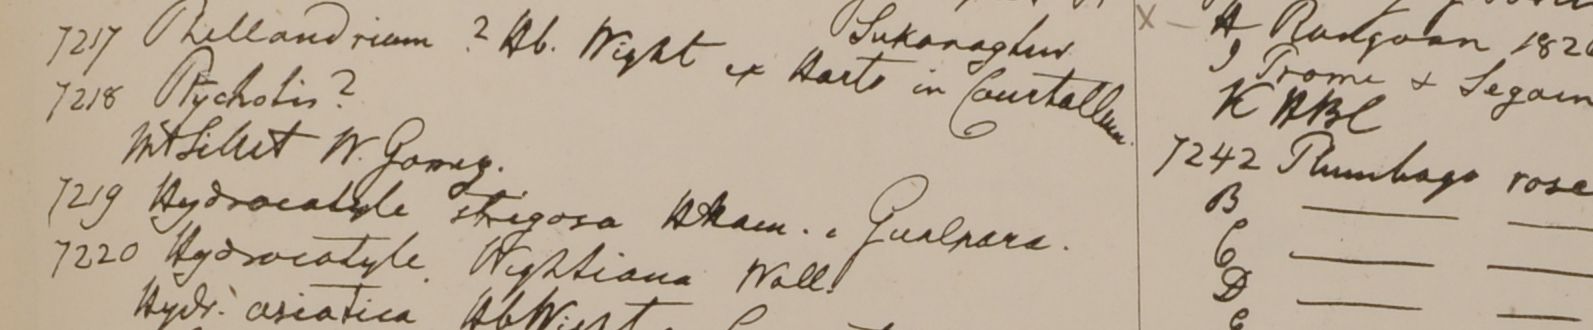 Sukanaghur
7217 Phellandrium ? Hb. Wight ex Horto in Courtallum.
7218 Ptychotis?
Mt Silhet W. Gomez.
7219 Hydrocotyle strigosa HHam. Gualpara.
7220 Hydrocotyle Wightiana Wall.
Hydr. asiatica Hb Wight
X — H Rangoon 182
I Prome & Segain
K HBC
7242 Plumbago rose
B
C
D
E